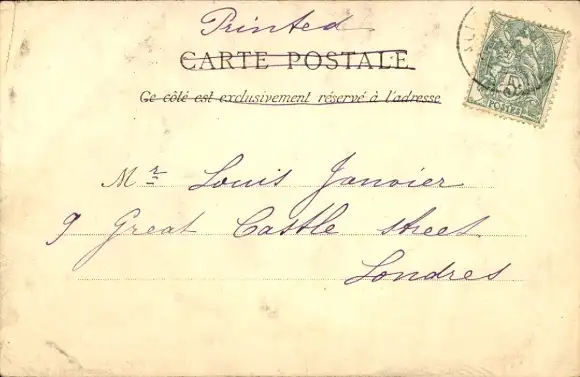 Printed
CARTE POSTALE
Ce côté est exclusivement réservé à l'adresse
5
POSTES
Mr Louis Janvier
9 Great Castle street
Londres